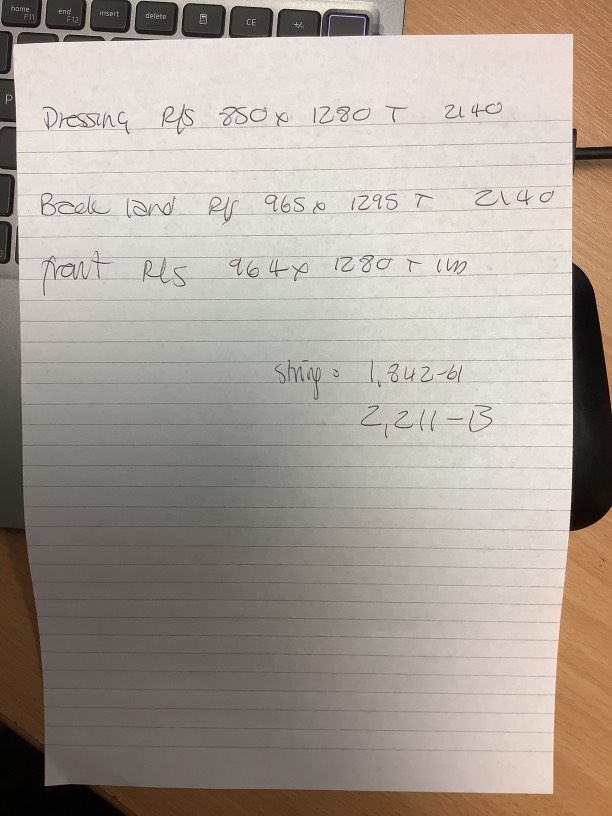 home F11 end F12 insert delete CE +/-
P
Dressing R/S 850 x 1280 T 2140
Back land R/S 965 x 1295 T 2140
front R/S 964 x 1280 T
String = 1,842-61
2,211-13